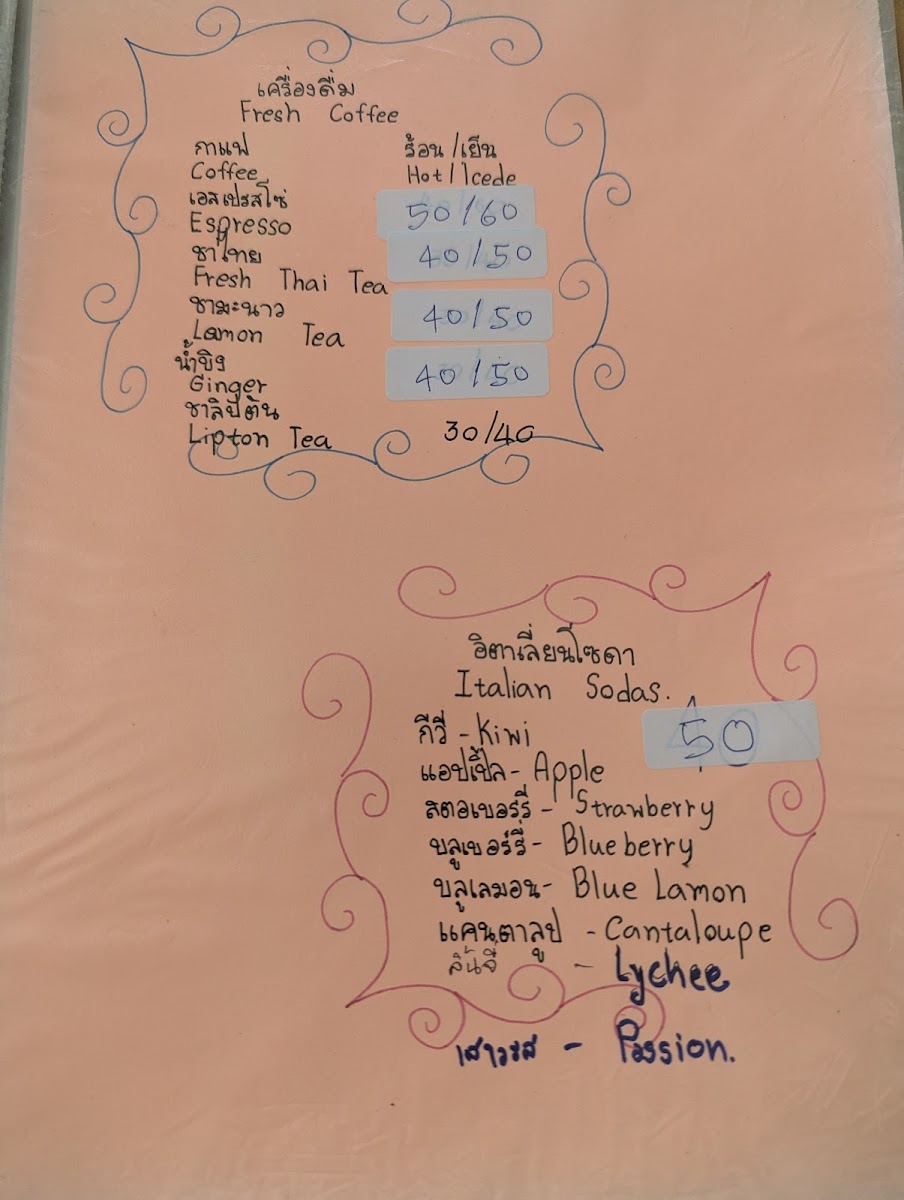 เครื่องดื่ม
Fresh Coffee
กาแฟ ร้อน/เย็น
Coffee Hot/Icede
เอสเปรสโซ่
Espresso 50/60
ชาไทย 40/50
Fresh Thai Tea
ชามะนาว 40/50
Lamon Tea
น้ำขิง 40/50
Ginger
ชาลิปตัน
Lipton Tea 30/40
อิตาเลี่ยนโซดา
Italian Sodas.
กีวี่ - Kiwi 50
แอปเปิ้ล - Apple
สตอเบอร์รี่ - Strawberry
บลูเบอร์รี่ - Blueberry
บลูเลมอน - Blue Lamon
แคนตาลูป - Cantaloupe
ลิ้นจี่ - Lychee
เสาวรส - Passion.